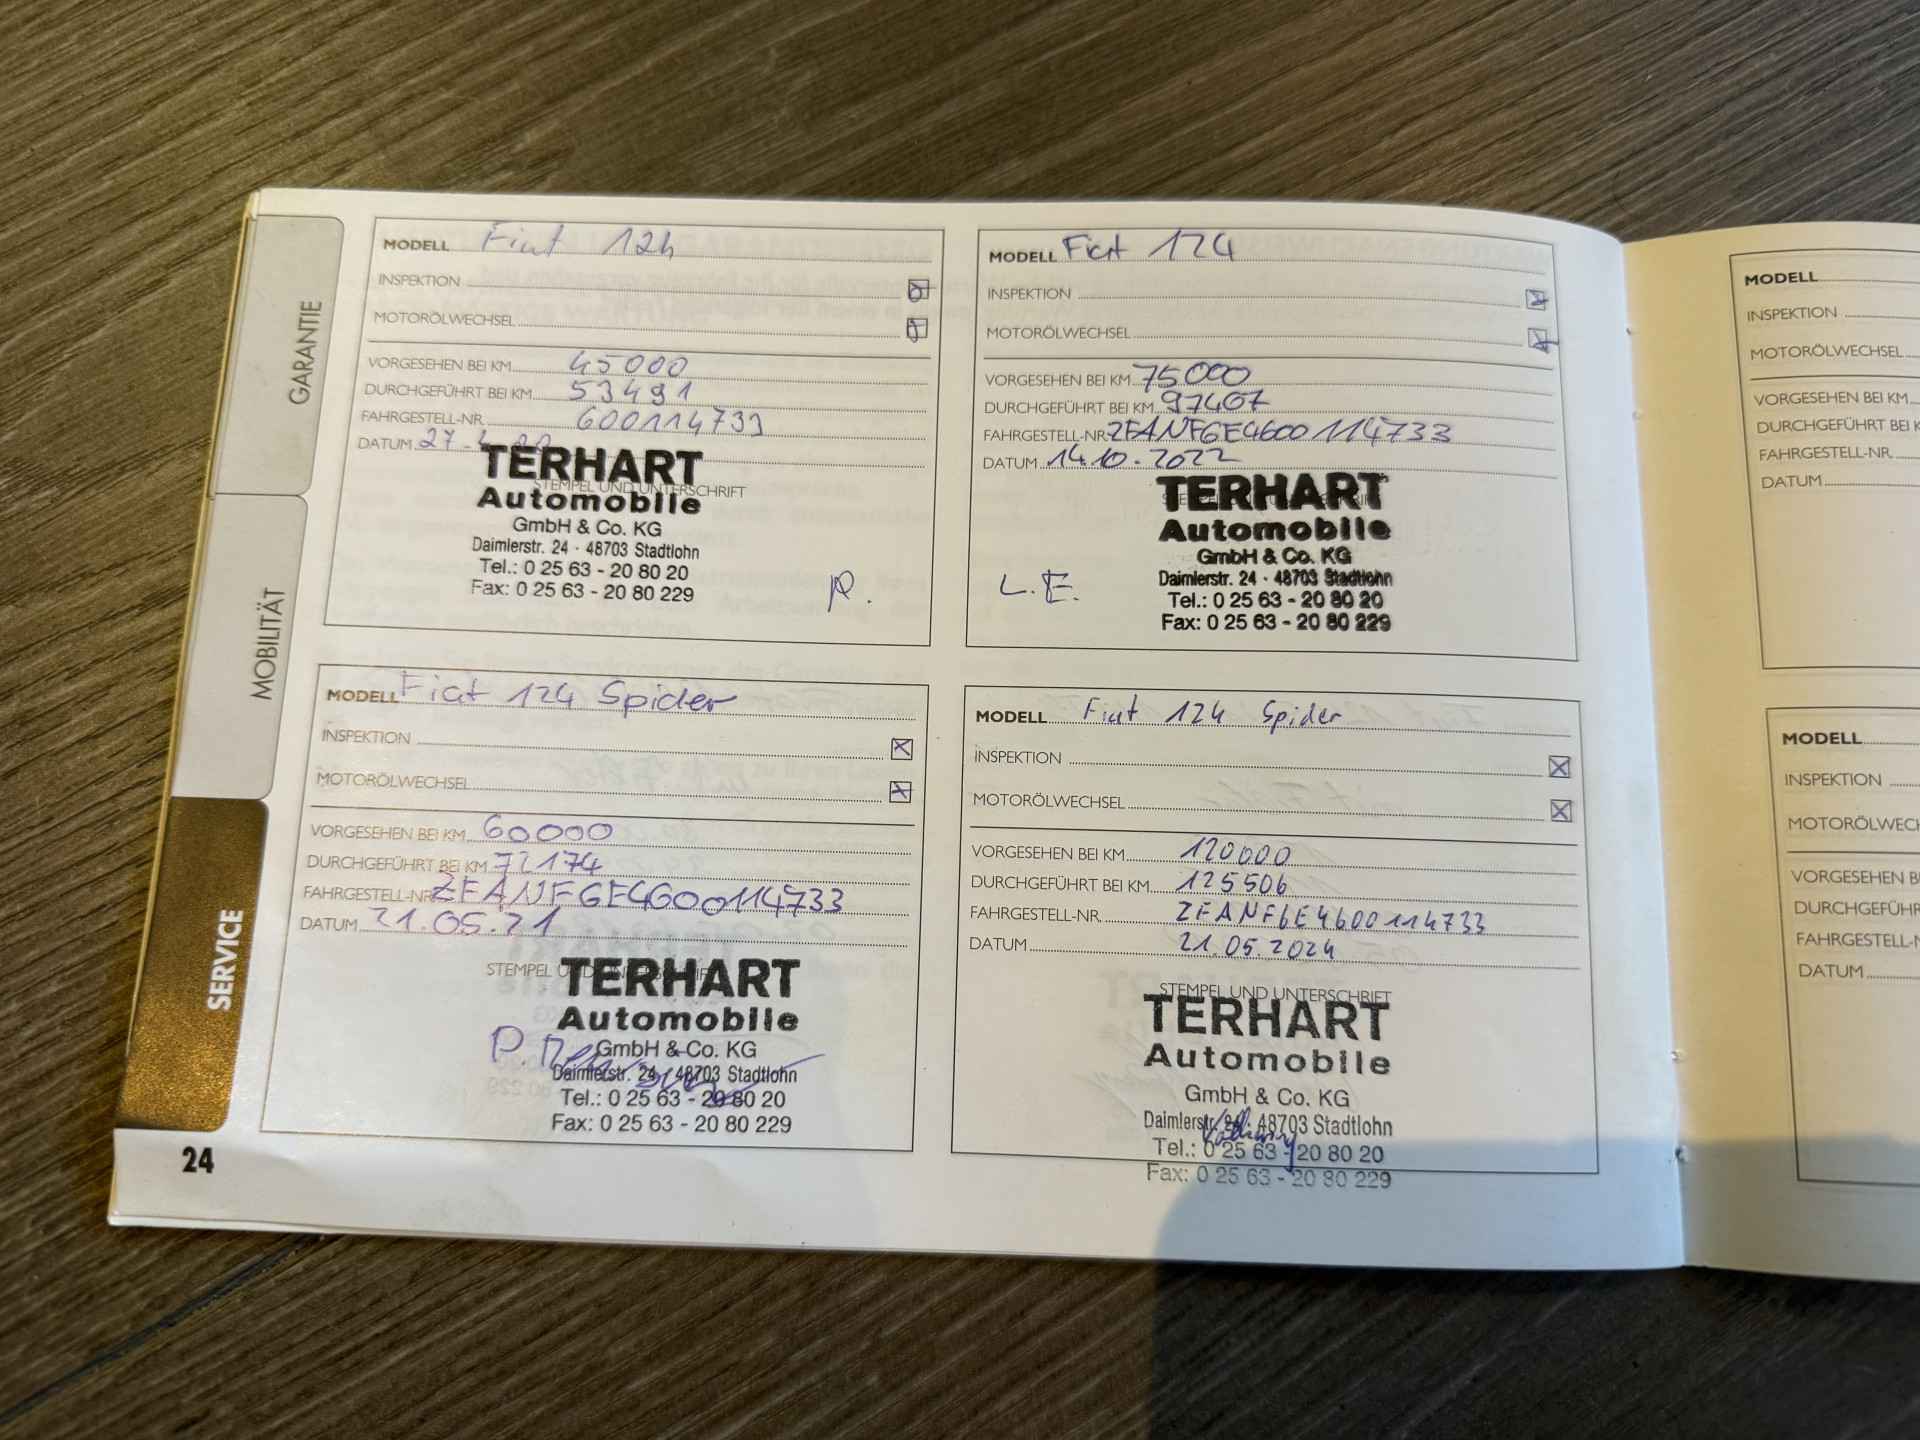 GARANTIE
MOBILITÄT
SERVICE
24
MODELL Fiat 124
INSPEKTION
MOTORÖLWECHSEL
VORGESEHEN BEI KM 45000
DURCHGEFÜHRT BEI KM 53491
FAHRGESTELL-NR. 600114733
DATUM 27.
STEMPEL UND UNTERSCHRIFT
TERHART
Automobile
GmbH & Co. KG
Daimlerstr. 24 · 48703 Stadtlohn
Tel.: 0 25 63 - 20 80 20
Fax: 0 25 63 - 20 80 229
MODELL Fiat 124 Spider
INSPEKTION
MOTORÖLWECHSEL
VORGESEHEN BEI KM 60000
DURCHGEFÜHRT BEI KM 72174
FAHRGESTELL-NR. ZFANF6E4600114733
DATUM 21.05.21
STEMPEL UND UNTERSCHRIFT
TERHART
Automobile
GmbH & Co. KG
Daimlerstr. 24 · 48703 Stadtlohn
Tel.: 0 25 63 - 20 80 20
Fax: 0 25 63 - 20 80 229
MODELL Fiat 124
INSPEKTION
MOTORÖLWECHSEL
VORGESEHEN BEI KM 75000
DURCHGEFÜHRT BEI KM 97407
FAHRGESTELL-NR. ZFANF6E4600114733
DATUM 14.10.2022
TERHART
Automobile
GmbH & Co. KG
L.E. Daimlerstr. 24 · 48703 Stadtlohn
Tel.: 0 25 63 - 20 80 20
Fax: 0 25 63 - 20 80 229
MODELL Fiat 124 Spider
INSPEKTION
MOTORÖLWECHSEL
VORGESEHEN BEI KM 120000
DURCHGEFÜHRT BEI KM 125506
FAHRGESTELL-NR. ZFANF6E4600114733
DATUM 21.05.2024
STEMPEL UND UNTERSCHRIFT
TERHART
Automobile
GmbH & Co. KG
Daimlerstr. 24 · 48703 Stadtlohn
Tel.: 0 25 63 - 20 80 20
Fax: 0 25 63 - 20 80 229
MODELL
INSPEKTION
MOTORÖLWECHSEL
VORGESEHEN BEI KM
DURCHGEFÜHRT BEI K
FAHRGESTELL-NR.
DATUM
MODELL
INSPEKTION
MOTORÖLWECH
VORGESEHEN B
DURCHGEFÜHR
FAHRGESTELL-N
DATUM